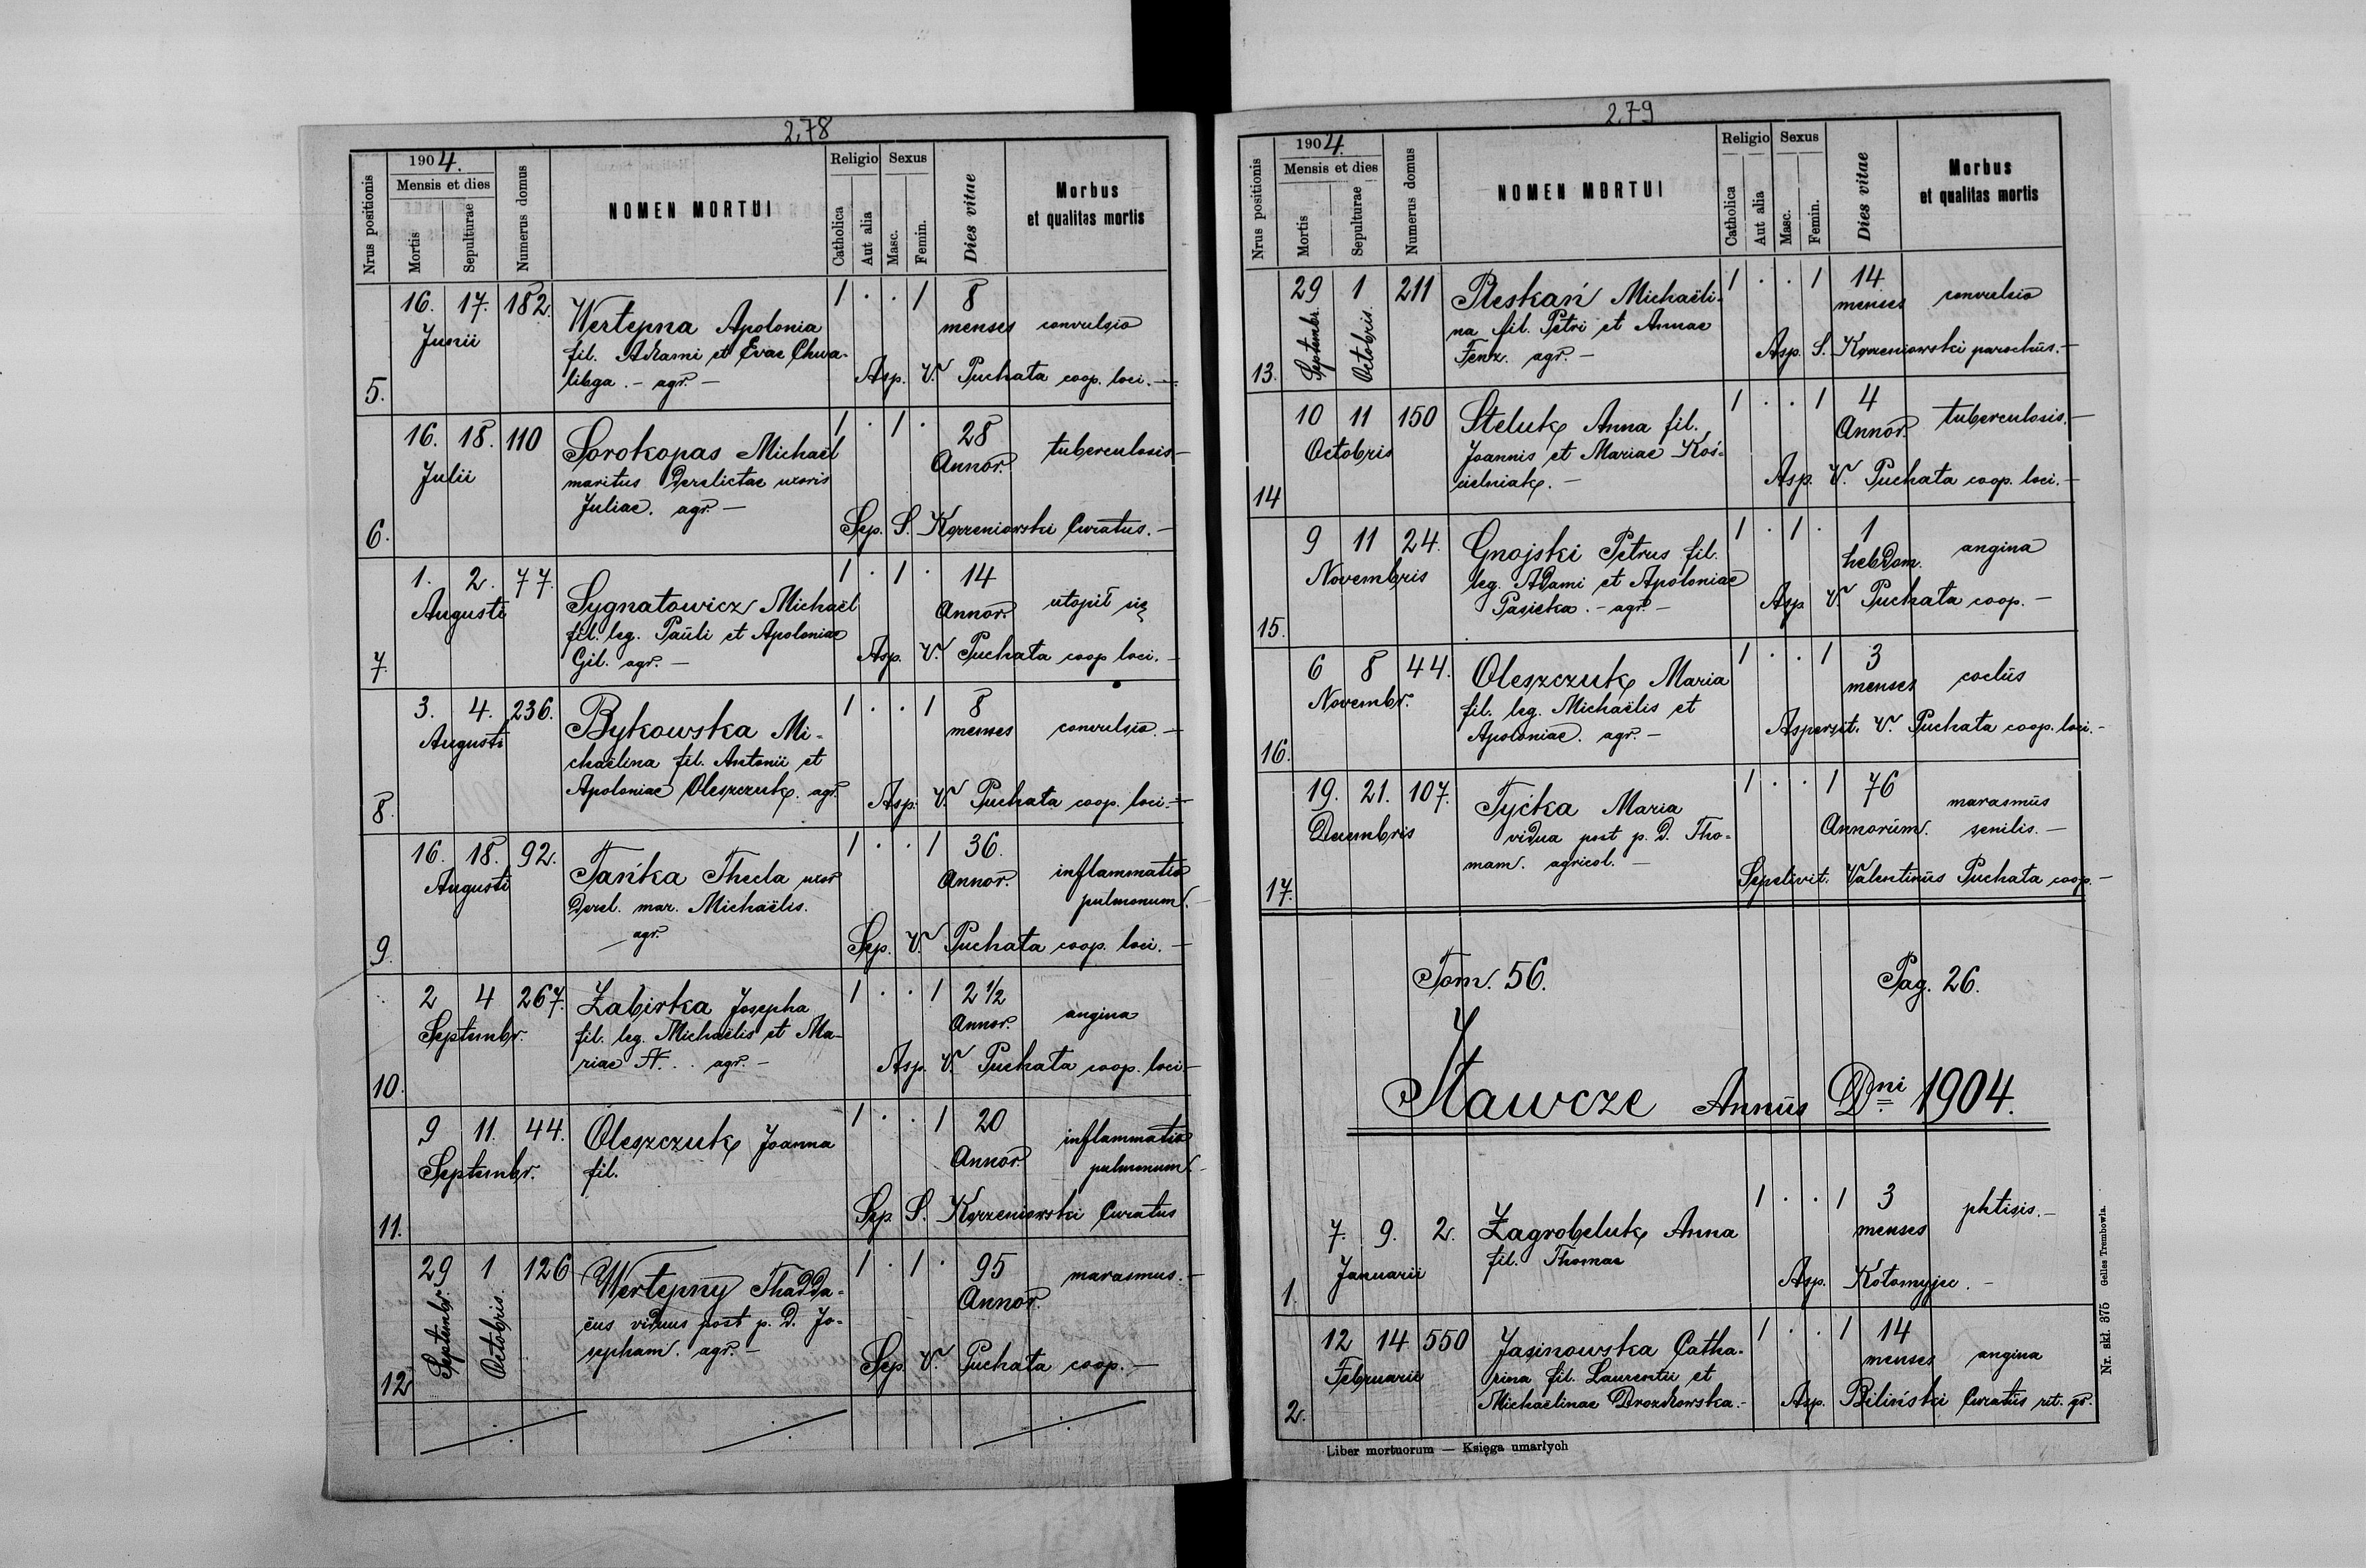 278
1904.
Nrus positionis
Mensis et dies
Mortis
Sepulturae
Numerus domus
NOMEN MORTUI
Religio
Catholica
Aut alia
Sexus
Masc.
Femin.
Dies vitae
Morbus
et qualitas mortis
5.
16. 17. 182.
Junii
Wertepna Apolonia
fil. Adami et Evae Chwa-
libga. - agr. -
1 . . 1
8
menses
convulsio
Asp. V. Puchata coop. loci. -
6.
16. 18. 110
Julii
Sorokopas Michaël
maritus Derelictae uxoris
Juliae. agr. -
1 . 1 .
28
Annor.
tuberculosis -
Sep. S. Korzeniowski Curatus. -
7.
1. 2. 77.
Augusti
Sygnatowicz Michaël
fil. leg. Pauli et Apoloniae
Gil. agr. -
1 . 1 .
14
Annor.
utopił się
Asp. V. Puchata coop loci. -
8.
3. 4. 236.
Augusti
Bykowska Mi-
chaëlina fil. Antonii et
Apoloniae Oleszczuk. agr.
1 . . 1
8
menses
convulsio. -
Asp. V. Puchata coop. loci -
9.
16. 18. 92.
Augusti
Tańka Thecla uxor
Derel. mar. Michaëlis.
agr.
1 . . 1
36.
Annor.
inflammatio
pulmonum.
Sep. V. Puchata coop. loci. -
10.
2 4 267.
Septembr.
Zabirka Josepha
fil. leg. Michaëlis et Ma-
riae N. . . agr. -
1 . . 1
2 1/2
Annor.
angina
Asp. V. Puchata coop. loci -
11.
9 11. 44.
Septembr.
Oleszczuk Joanna
fil.
1 . . 1
20
Annor.
inflammatio
pulmonum.
Sep S. Korzeniowski Curatus
12
29 1 126
Septembr.
Octobris.
Wertepny Thadda-
eus viduus post p. D. Jo-
sepham. agr. -
1 . 1 .
95
Annor.
marasmus. -
Sep. V. Puchata coop. -
279
1904.
Nrus positionis
Mensis et dies
Mortis
Sepulturae
Numerus domus
NOMEN MORTUI
Religio
Catholica
Aut alia
Sexus
Masc.
Femin.
Dies vitae
Morbus
et qualitas mortis
13.
29 1 211
Septembr.
Octobris.
Pleskań Michaëli-
na fil. Petri et Annae
Fenz. agr. -
1 . . 1
14
menses
convulsio
Asp. S. Korzeniowski parochus. -
14
10 11 150
Octobris
Steluk Anna fil.
Joannis et Mariae Koś-
cielniak. -
1 . . 1
4
Annor.
tuberculosis. -
Asp. V. Puchata coop. loci. -
15.
9 11 24.
Novembris
Gnojski Petrus fil.
leg. Adami et Apoloniae
Pasieka. - agr. -
1 . 1 .
1
hebdom.
angina
Asp V. Puchata coop. -
16.
6 8 44.
Novembr.
Oleszczuk Maria
fil. leg. Michaëlis et
Apoloniae. agr. -
1 . . 1
3
menses
coclus
Aspersit. V. Puchata coop. loci. -
17.
19. 21. 107.
Decembris
Tyćka Maria
vidua post p. D. Tho-
mam. agricol. -
1 . . 1
76
Annorum.
marasmus
senilis. -
Sepelivit. Valentinus Puchata coop. -
Tom. 56. Pag. 26.
Iławcze Annus Dni 1904.
1.
7. 9. 2.
Januarii
Zagrobeluk Anna
fil. Thomae
1 . . 1
3
menses
phtisis. -
Asp. Kołomyjec. -
2.
12 14 550
Februarii
Jasinowska Catha-
rina fil. Laurentii et
Michaëlinae Drozdowska. -
1 . . 1
14
menses
angina
Asp. Biliński Curatus rit. gr.
Liber mortuorum — Księga umarłych
Nr. skł. 375 Gelles Trembowla.